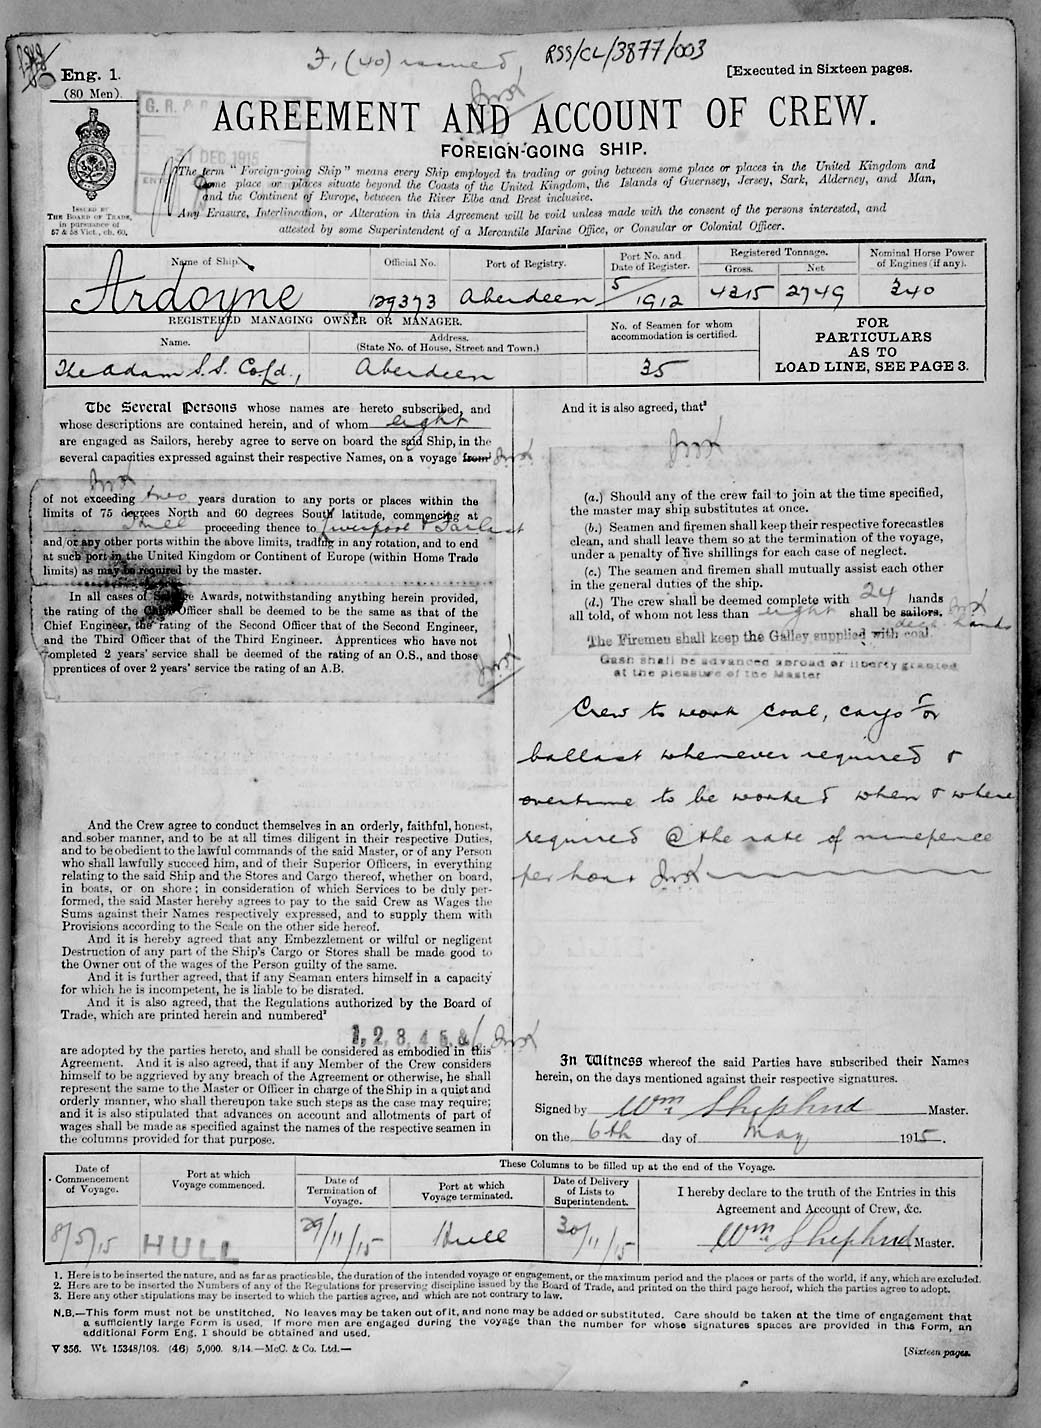 F, (40) issued,
RSS/CL/3877/003
Eng. 1.
(80 Men).
[Executed in Sixteen pages.
AGREEMENT AND ACCOUNT OF CREW.
FOREIGN-GOING SHIP.
31 DEC 1915
The term "Foreign-going Ship" means every Ship employed in trading or going between some place or places in the United Kingdom and
some place or places situate beyond the Coasts of the United Kingdom, the Islands of Guernsey, Jersey, Sark, Alderney, and Man,
and the Continent of Europe, between the River Elbe and Brest inclusive.
Any Erasure, Interlineation, or Alteration in this Agreement will be void unless made with the consent of the persons interested, and
attested by some Superintendent of a Mercantile Marine Office, or Consular or Colonial Officer.
ISSUED BY
THE BOARD OF TRADE,
in pursuance of
57 & 58 Vict., ch. 60.
Name of Ship. Official No. Port of Registry. Port No. and Date of Register. Registered Tonnage. Gross. Net Nominal Horse Power of Engines (if any).
Ardoyne 129373 Aberdeen 5/1912 4315 2749 340
REGISTERED MANAGING OWNER OR MANAGER.
Name. Address. (State No. of House, Street and Town.)
No. of Seamen for whom accommodation is certified.
FOR
PARTICULARS
AS TO
LOAD LINE, SEE PAGE 3.
The Adam S.S. Co Ld., Aberdeen 35
The Several Persons whose names are hereto subscribed, and
whose descriptions are contained herein, and of whom eight
are engaged as Sailors, hereby agree to serve on board the said Ship, in the
several capacities expressed against their respective Names, on a voyage from
of not exceeding two years duration to any ports or places within the
limits of 75 degrees North and 60 degrees South latitude, commencing at
Hull proceeding thence to Liverpool &
and/or any other ports within the above limits, trading in any rotation, and to end
at such port in the United Kingdom or Continent of Europe (within Home Trade
limits) as may be required by the master.
In all cases of Salvage Awards, notwithstanding anything herein provided,
the rating of the Chief Officer shall be deemed to be the same as that of the
Chief Engineer, the rating of the Second Officer that of the Second Engineer,
and the Third Officer that of the Third Engineer. Apprentices who have not
completed 2 years' service shall be deemed of the rating of an O.S., and those
pprentices of over 2 years' service the rating of an A.B.
And the Crew agree to conduct themselves in an orderly, faithful, honest,
and sober manner, and to be at all times diligent in their respective Duties,
and to be obedient to the lawful commands of the said Master, or of any Person
who shall lawfully succeed him, and of their Superior Officers, in everything
relating to the said Ship and the Stores and Cargo thereof, whether on board,
in boats, or on shore; in consideration of which Services to be duly per-
formed, the said Master hereby agrees to pay to the said Crew as Wages the
Sums against their Names respectively expressed, and to supply them with
Provisions according to the Scale on the other side hereof.
And it is hereby agreed that any Embezzlement or wilful or negligent
Destruction of any part of the Ship's Cargo or Stores shall be made good to
the Owner out of the wages of the Person guilty of the same.
And it is further agreed, that if any Seaman enters himself in a capacity
for which he is incompetent, he is liable to be disrated.
And it is also agreed, that the Regulations authorized by the Board of
Trade, which are printed herein and numbered²
1, 2, 3, 4, 5, &
are adopted by the parties hereto, and shall be considered as embodied in this
Agreement. And it is also agreed, that if any Member of the Crew considers
himself to be aggrieved by any breach of the Agreement or otherwise, he shall
represent the same to the Master or Officer in charge of the Ship in a quiet and
orderly manner, who shall thereupon take such steps as the case may require;
and it is also stipulated that advances on account and allotments of part of
wages shall be made as specified against the names of the respective seamen in
the columns provided for that purpose.
And it is also agreed, that³
(a.) Should any of the crew fail to join at the time specified,
the master may ship substitutes at once.
(b.) Seamen and firemen shall keep their respective forecastles
clean, and shall leave them so at the termination of the voyage,
under a penalty of five shillings for each case of neglect.
(c.) The seamen and firemen shall mutually assist each other
in the general duties of the ship.
(d.) The crew shall be deemed complete with 24 hands
all told, of whom not less than eight shall be sailors.
deck hands
The Firemen shall keep the Galley supplied with coal.
Cash shall be advanced abroad or liberty granted
at the pleasure of the Master
Crew to work coal, cargo &/or
ballast whenever required &
overtime to be worked when & where
required @ the rate of ninepence
per hour
In Witness whereof the said Parties have subscribed their Names
herein, on the days mentioned against their respective signatures.
Signed by Wm Shepherd Master.
on the 6th day of May 1915.
Date of Commencement of Voyage. Port at which Voyage commenced. These Columns to be filled up at the end of the Voyage.
Date of Termination of Voyage. Port at which Voyage terminated. Date of Delivery of Lists to Superintendent.
I hereby declare to the truth of the Entries in this
Agreement and Account of Crew, &c.
8/5/15 HULL 29/11/15 Hull 30/11/15 Wm Shepherd Master.
1. Here is to be inserted the nature, and as far as practicable, the duration of the intended voyage or engagement, or the maximum period and the places or parts of the world, if any, which are excluded.
2. Here are to be inserted the Numbers of any of the Regulations for preserving discipline issued by the Board of Trade, and printed on the third page hereof, which the parties agree to adopt.
3. Here any other stipulations may be inserted to which the parties agree, and which are not contrary to law.
N.B.—This form must not be unstitched. No leaves may be taken out of it, and none may be added or substituted. Care should be taken at the time of engagement that
a sufficiently large Form is used. If more men are engaged during the voyage than the number for whose signatures spaces are provided in this Form, an
additional Form Eng. 1 should be obtained and used.
V 356. Wt. 15348/108. (46) 5,000. 8/14.—McC. & Co. Ltd.—
[Sixteen pages.